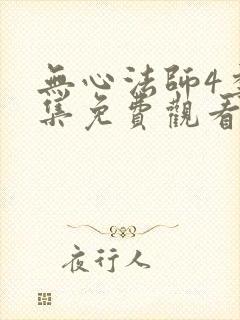 無心法師4
集免費觀看
夜行人